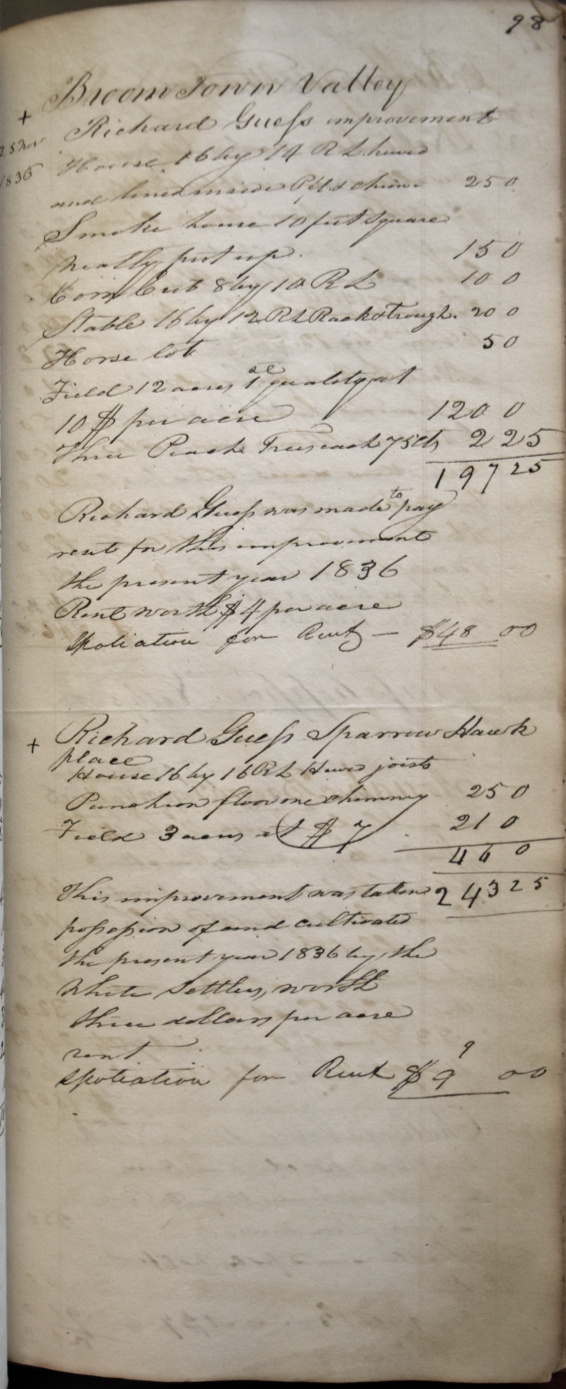 98
Broom Town Valley
+ Richard Guess improvement
25 Nov House 16 by 14 R L hewed
1836
and lined inside 250
Smoke house 10 feet square
neatly put up 150
Corn Crib 8 by 10 R L 100
Stable 16 by 12 R L Rack & trough. 200
Horse lot 50
Field 12 acres 1 quality at
10 $ per acre 1200
Three Peach Trees each 75 cts 225
19725
Richard Guess was made to pay
rent for this improvement
the present year 1836
Rent worth $4 per acre
Spoliation for Rent — $48 00
+ Richard Guess Sparrow Hawk
place
House 16 by 16 R L Hewd joists
Puncheon floor one chimney 250
Field 3 acres at $7 210
460
24325
This improvement was taken
possession of and cultivated
the present year 1836 by the
White Settlers, worth
three dollars per acre
rent
9
Spoliation for Rent $9 00